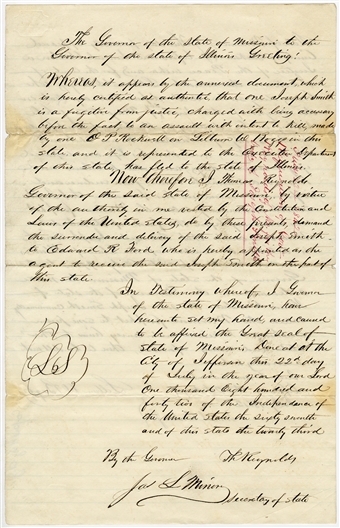 The Governor of the State of Missouri to the
Governor of the state of Illinois Greeting:
Whereas, it appears by the annexed document, which
is hereby certified as authentic that one Joseph Smith
is a fugitive from justice, charged with being accessary
before the fact to an assault with intent to kill, made
by one O P Rockwell on Lilburn W. Boggs in this
state and it is represented to the Executive Department
of this state, has fled to the state of Illinois
Now therefore I Thomas Reynolds
Governor of the said State of Missouri by virtue
of the authority in me vested by the Constitution and
Laws of the United States, do by these presents demand
the surrender and delivery of the said Joseph Smith
to Edward R. Ford who is hereby appointed as the
agent to receive the said Joseph Smith on the part of
this state.
In Testimony whereof, I Governor
of the state of Missouri, have
hereunto set my hand, and caused
to be affixed the Great Seal of
State of Missouri. Done at the
City of Jefferson this 22d day
of July in the year of our Lord
One thousand Eight hundred and
forty two of the Independence of
the United States the sixty seventh
and of this state the twenty third
L S
By the Governor Th Reynolds
Jas L Minor
Secretary of state